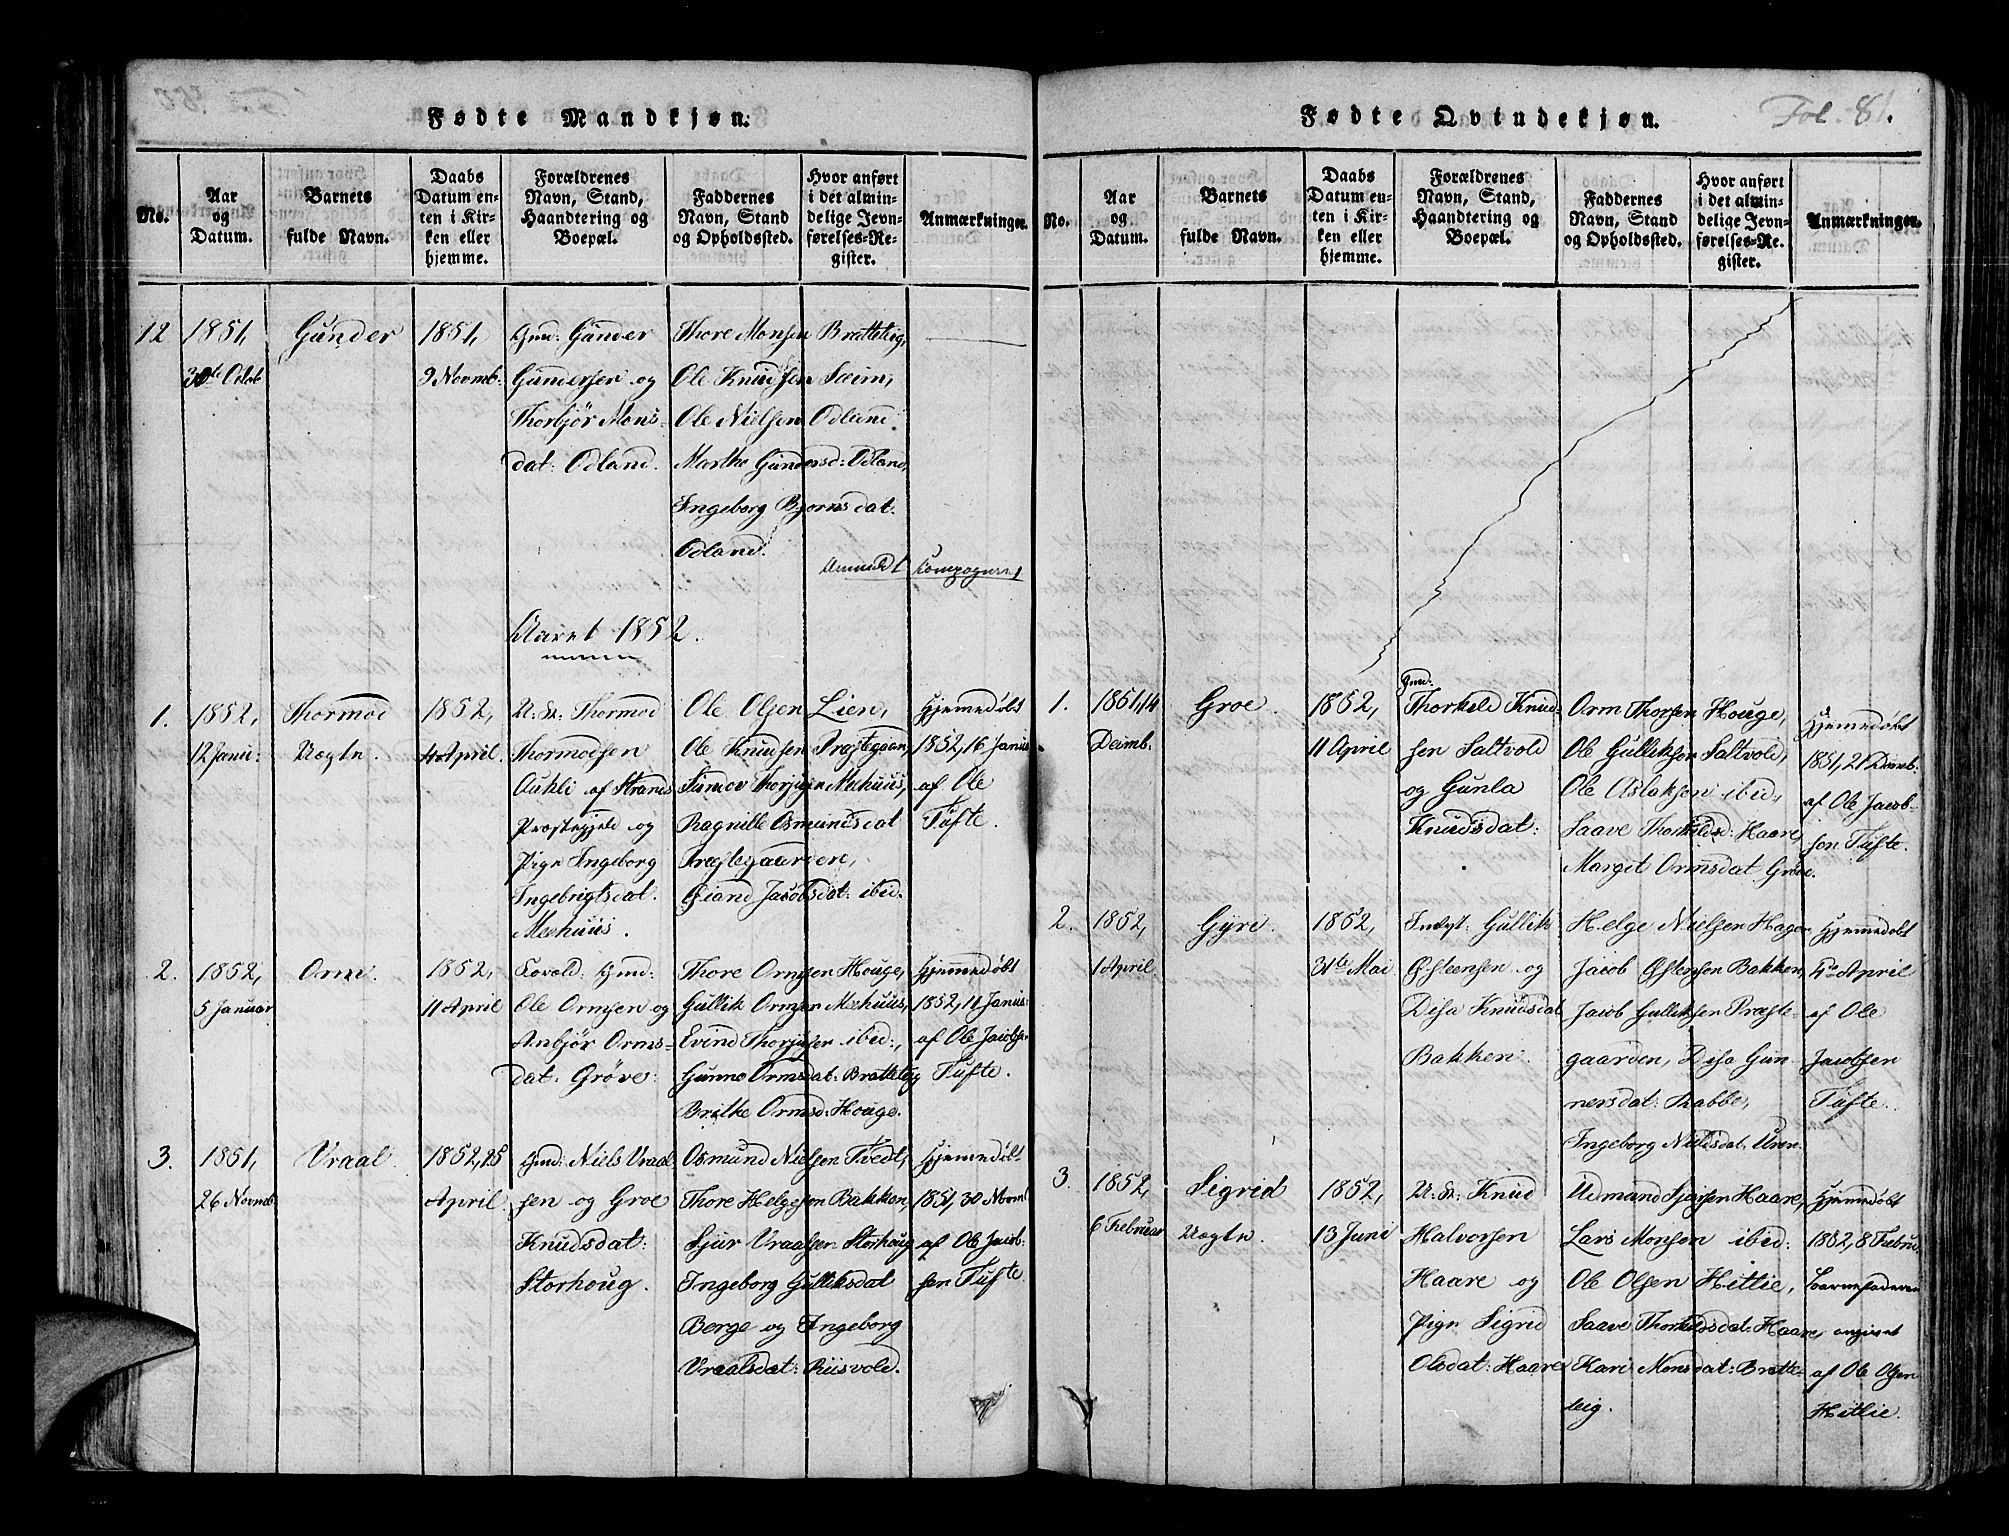 Fødte Mandkjøn.
No.
Aar og Datum.
Barnets fulde Navn.
Daabs Datum enten i Kirken eller hjemme.
Forældrenes Navn, Stand, Haandtering og Boepæl.
Faddernes Navn, Stand og Opholdssted.
Hvor anført i det almindelige Jevnførelses-Register.
Anmærkninger.
12 1851, Gunder 1851, Gmd: Gunder Thore Monsen Bratteteig,
30te Octob 9 Novmb: Gundersen og Ole Knudsen Sæim,
Thorbjør Mons- Ole Nielsen Odland.
dat: Odland. Marthe Gundersd: Odland,
Ingeborg Bjørnsdat.
Odland.
Anmeldt
Aaret 1852.
1. 1852, Thormod 1852, U: St: Thormod Ole Olsen Lien, Hjemmedøbt
12 Janu: Uægte. 4 April. Thormodsen Ole Knudsen Præstegaard, 1852, 16 Janua
Aukli af Strands Simov Thorjusen Meehuus, af Ole
Præstegjeld og Ragnille Osmundsdat Tufte.
Pige Ingeborg Præstegaarden,
Ingebrigtsdat. Giand Jacobsdat: ibid.
Meehuus.
2. 1852, Orm. 1852, Gmd: Thore Ormsen Houge, Hjemmedøbt
5 Januar 11 April Ole Ormsen og Gullik Ormsen Meehuus, 1852, 11 Janua:
Anbjør Orms- Evind Thorjusen ibid:, af Ole Jacobse
dat. Grøve: Gunne Ormsdat: Bratteteig Tufte.
Brithe Ormsd: Houge.
3. 1851, Vraal. 1852, 25 Gmd: Niels Vraal Osmund Nielsen Tvedt, Hjemmedøbt
26 Novmb April sen og Groe Thore Helgesen Bakken, 1851, 30 Novmb
Knudsdat: Sjur Vraalsen Storhoug af Ole Jacob:
Storhoug. Ingeborg Gulliksdat sen Tufte.
Berge og Ingeborg
Vraalsdat: Riisvold.
Fødte Qvindekjøn.
Fol. 81.
No.
Aar og Datum.
Barnets fulde Navn.
Daabs Datum enten i Kirken eller hjemme.
Forældrenes Navn, Stand, Haandtering og Boepæl.
Faddernes Navn, Stand og Opholdssted.
Hvor anført i det almindelige Jevnførelses-Register.
Anmærkninger.
Gmd:
1. 1851, 14 Groe. 1852, Thorkeld Knud- Orm Thorsen Houge, Hjemmedøbt
Decmb. 11 April sen Saltvold Ole Gulliksen Saltvold, 1851, 21 Decmb:
og Gunla Ole Aslaksen ibid, af Ole Jacob-
Knudsdat: Saave Thorkildsd: Haare, sen Tufte.
Margit Ormsdat Grøve.
2. 1852, Gyre. 1852, Gullik Helge Nielsen Hagen Hjemmedøbt
1 April 31te Mai Østeensen og Jacob Østensen Bakken, April
Disa Knudsdat Jacob Gulliksen Præste- af Ole
Bakken. gaarden, Disa Gun- Jacobsen
nersdat: Rabbe, Tufte.
Ingeborg Nielsdat. Uren.
3. 1852, Sigrid 1852, U: St: Knud Udmand Haare, Hjemmedøbt
6 Februar Uægte. 13 Juni Halvorsen Lars Monsen ibid: 1852, 8 Februa
Haare og Ole Olsen Hitlie, Barnefaderen
Pige Sigrid Saave Thorkildsdat: Haare, angivet
Olsdat: Haare Kari Monsdat: Bratte- af Ole Olsen
teig. Hitlie.